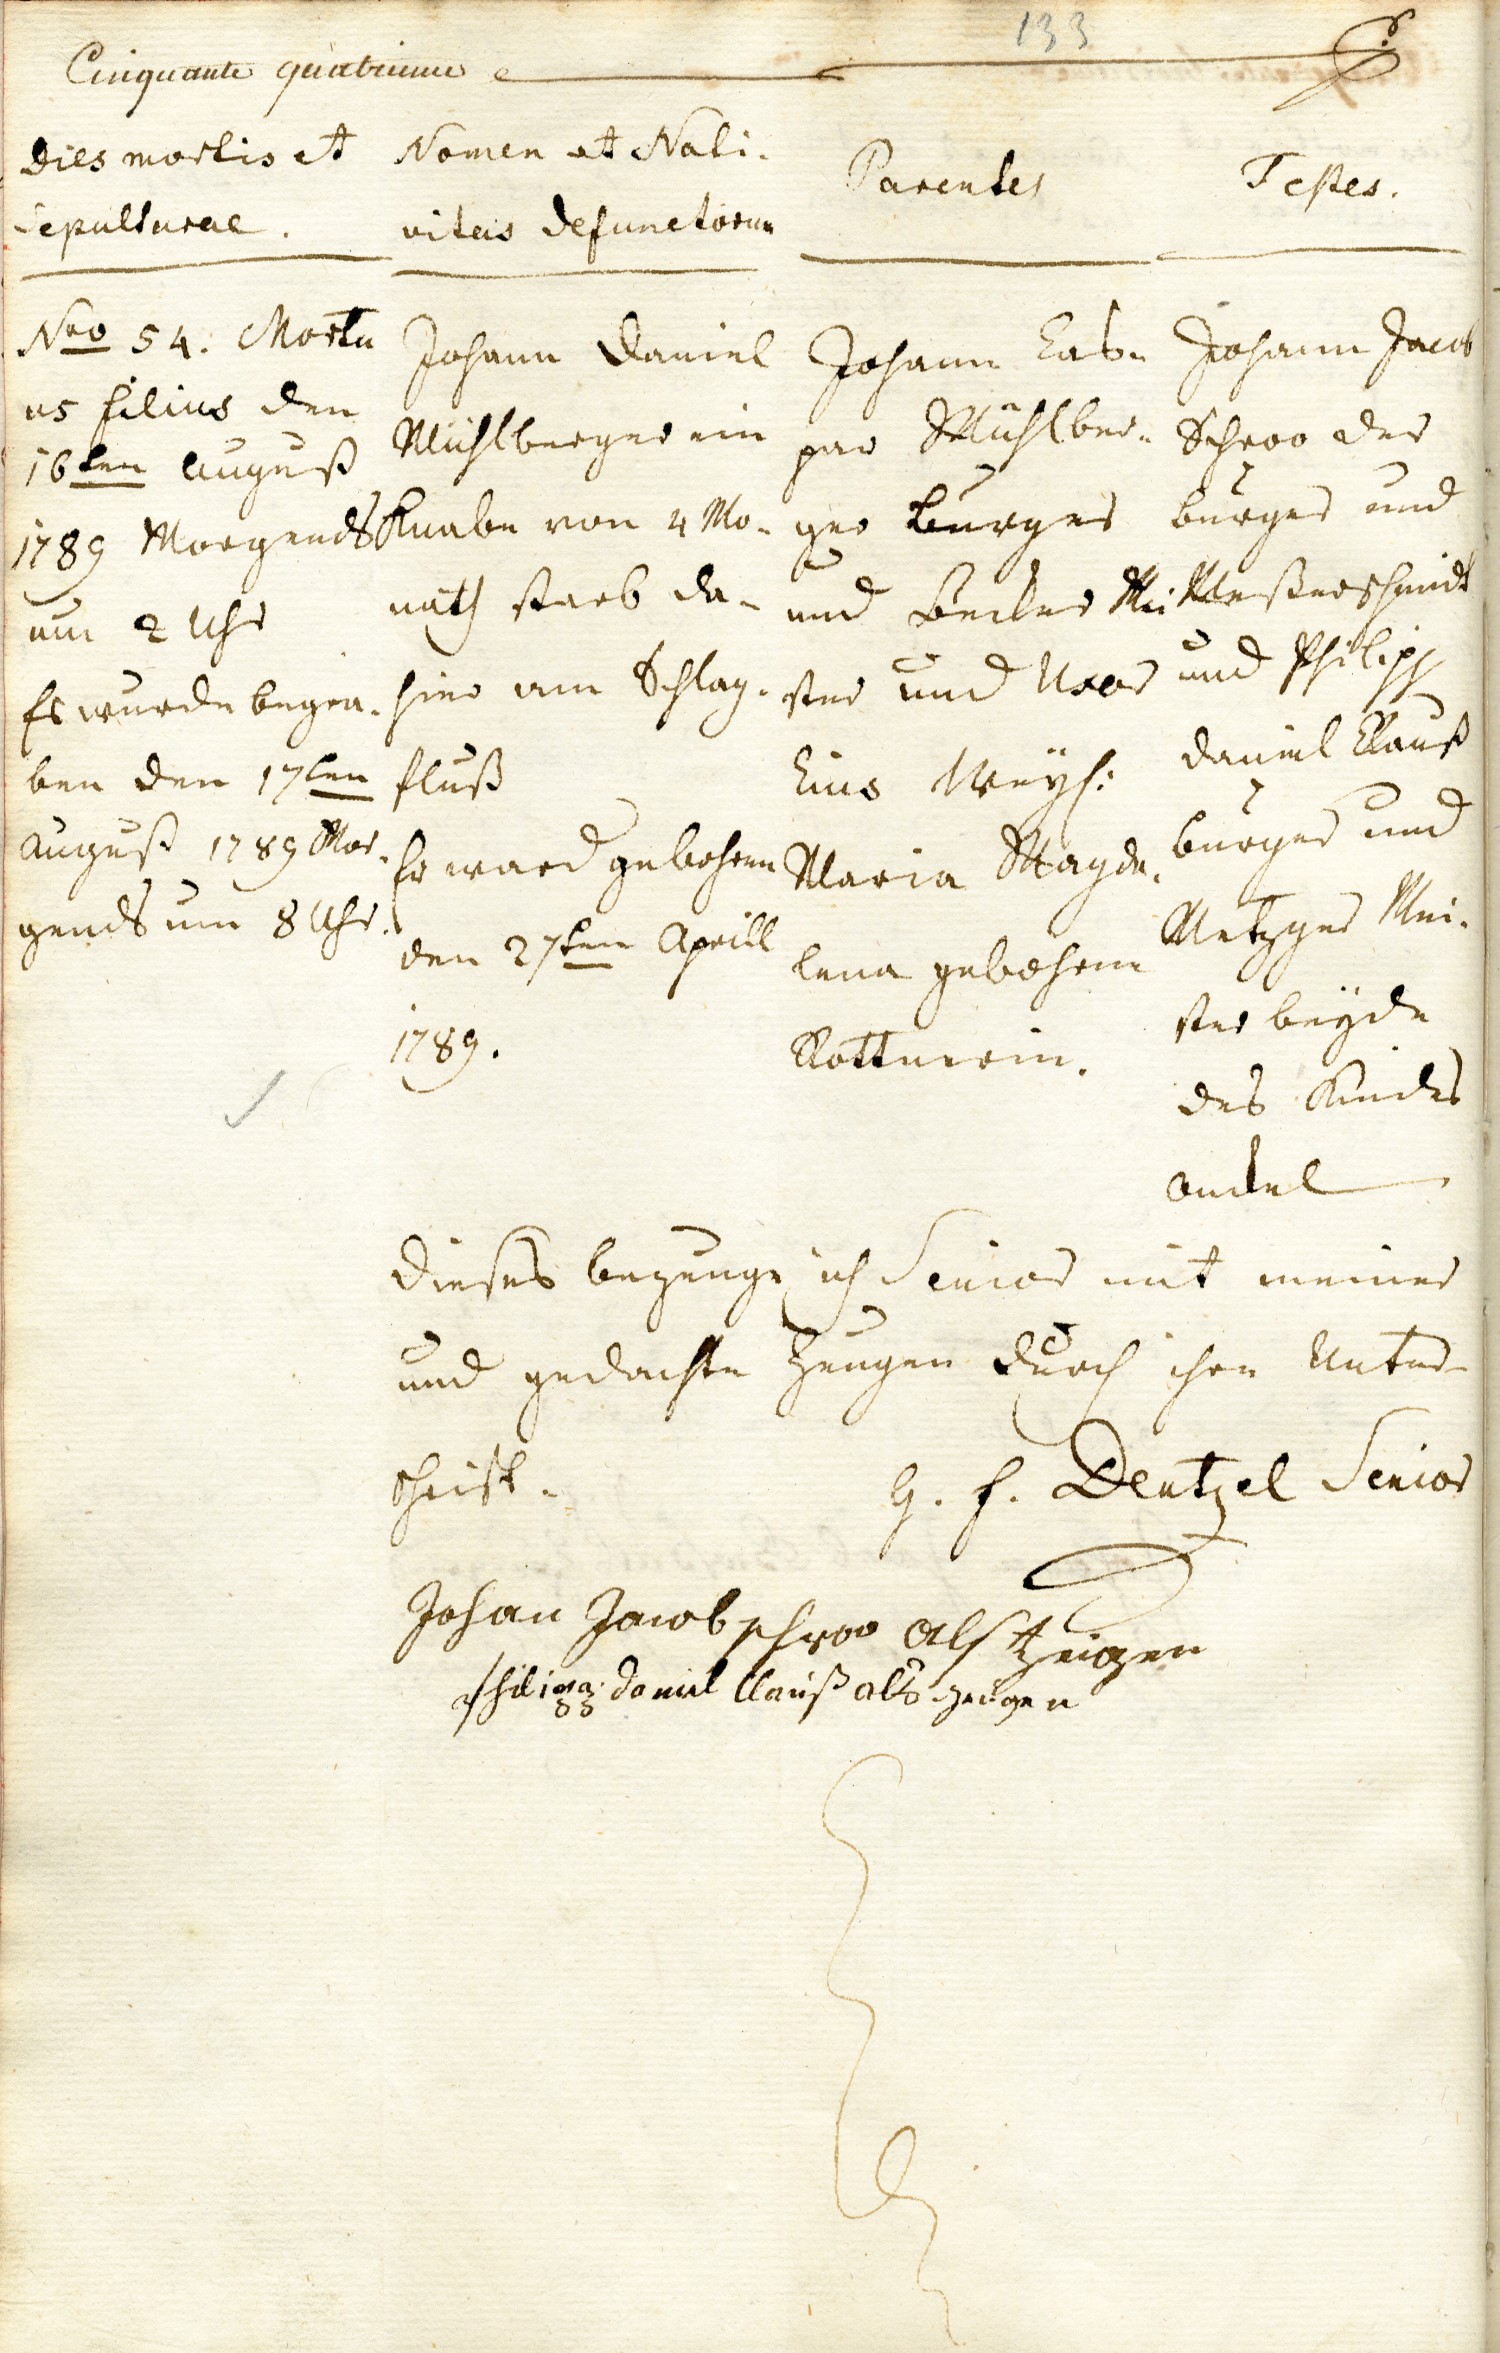 133
Cinquante quatrieme
Dies mortis et
Sepulturae.
Nomen et Nati-
vitas defunctorum
Parentes
Testes.
Nro 54. Mortu
us filius den
16ten August
1789 Morgends
um 2 Uhr
Es wurde begra-
ben den 17ten
August 1789 Mor-
gends um 8 Uhr.
Johann Daniel
Mühlberger ein
Knabe von 4 Mo-
nath starb da-
hier am Schlag-
fluß
Er ward gebohren
den 27ten Aprill
1789.
Johann Cas-
par Mühlber-
ger Burger
und Becker Mei
ster und Uxor
Eius
Maria Magda-
lena gebohrne
Rotturin.
Johann Jacob
Schroo der
burger und
Meßerschmidt
und Philipp
Daniel Clauß
burger und
Metzger Mei-
ster beyde
des Kindes
onckel
Dieses bezeuge ich Senior mit meiner
und gedachte Zeugen durch ihre Unter-
schrift.
G. F. Dentzel Senior
Johan Jacob schroo als Zeigen
Philipp Daniel Clauß als zeugen